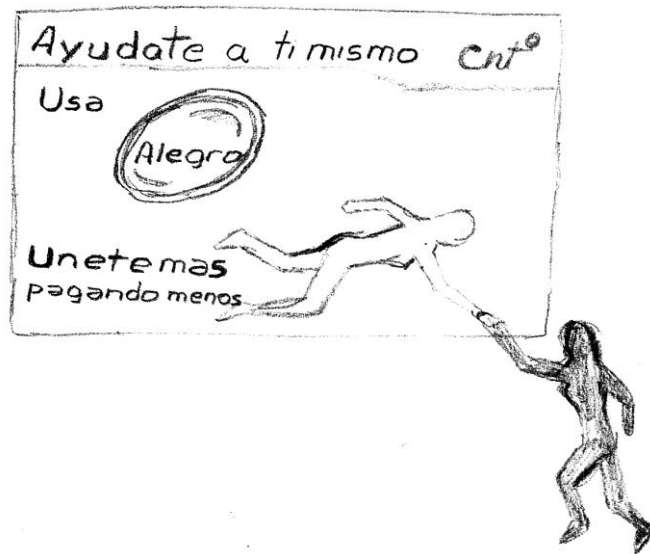 Ayudate a ti mismo cnt
Usa
Alegro
Unete mas
pagando menos